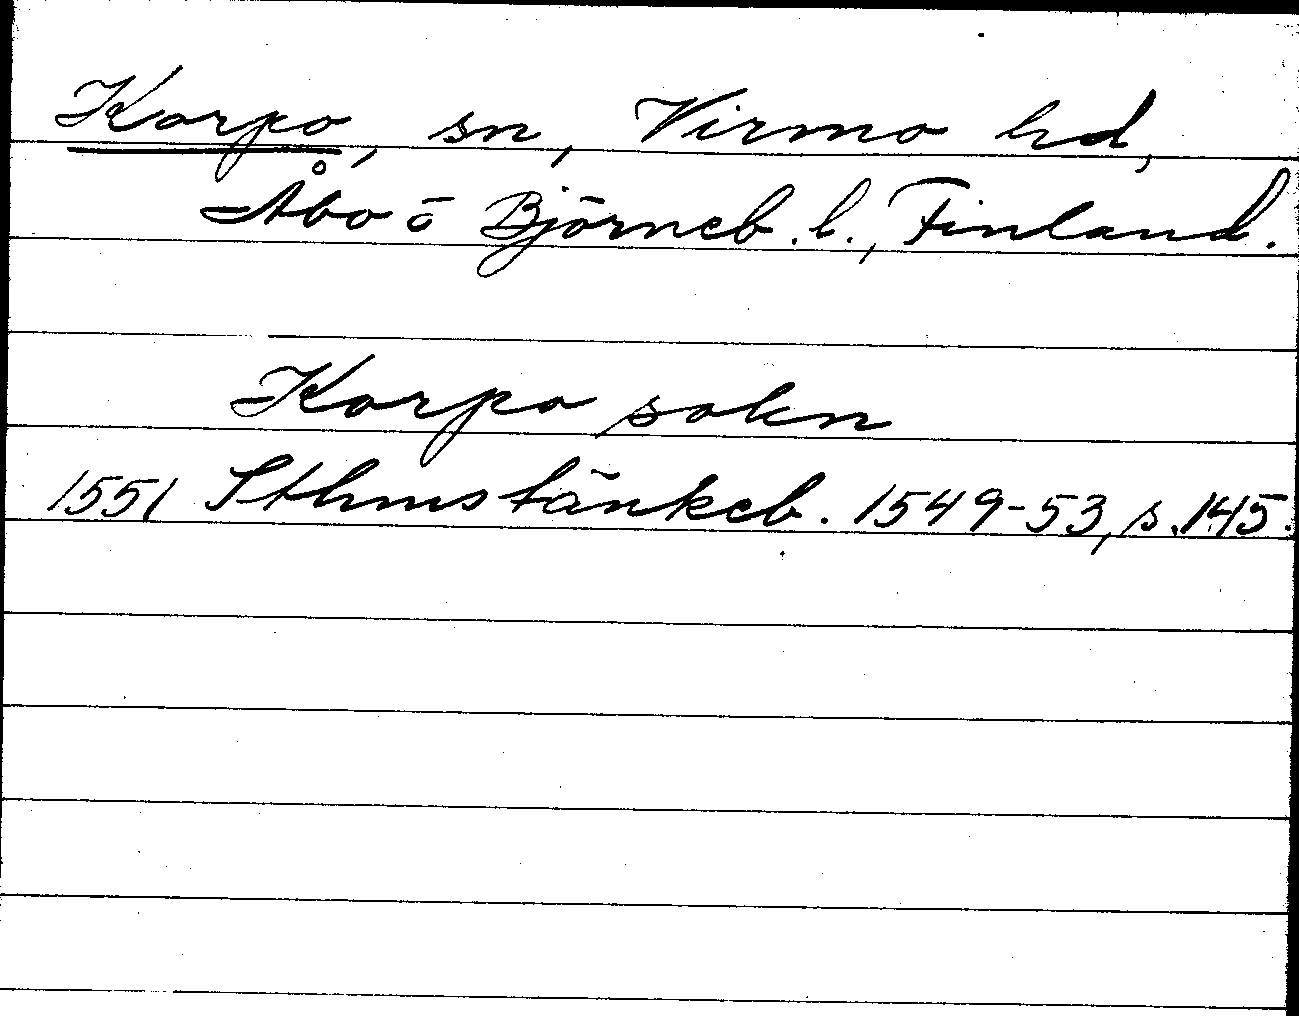 Korpo, sn, Virmo hd,
Åbo o Björneb. l., Finland.
Korpo sokn
1551 Sthms tänkeb. 1549-53, s. 145.